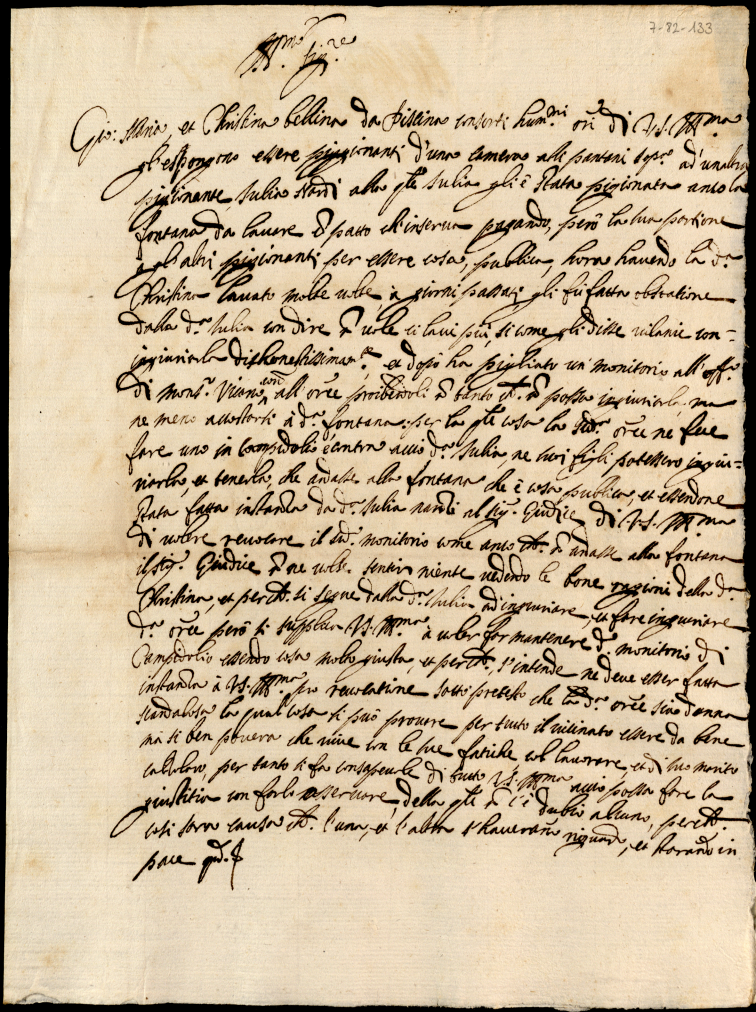 7-82-133
Ill.mo Sig.re
Gio: Maria, et Christina bellina da Pistina consorti hum.mi ori di V.S. Ill.ma
gl'espongono essere piggionanti d'una camera alli pantani sopra ad un altra
pigionante, Iulia Nardi alla q.le Iulia gli è stata pigionata anco la
fontana da lavare con patto ch'inserva pagando, però la sua portione
a gli altri pigionanti per essere cosa, publica, hora havendo la d.a
Christina lavato molte volte à giorni passati, gli fù fatta obstatione
dalla d.a Iulia con dire non vole ci lavi più, si come gli disse vilanie con-
ingiuriarla dishonestissimam.te, et dopò ha pigliato un monitorio all' off.o
di mons.r Vicario, all' or.ce proibendoli non tanto ch. non possa ingiuriarla, ma
ne meno accostarsi à d.a fontana; per la q.le cosa la sud.a or.ce ne fece
fare uno in Campidolio contra acciò d.a Iulia, ne suoi figli potessero ingiu-
riarla, et tenerla, che andasse alla fontana che è cosa publica, et essendone
stata fatta instanza da d.a Iulia nardi al sig.r Giudice di V.S. Ill.ma
di volere revocare il sud.o monitorio come anco ch. non andasse alla fontana
il sig.r Giudice non ne volse sentir niente vedendo le bone ragioni della d.a
Christina, et perch. si segue dalla d.a Iulia ad ingiuriare, et fare ingiuriare
d.a or.ce però si supplica V.S. Ill.ma à voler far mantenere d.o monitorio di
Campidolio essendo cosa molto giusta, et perch. s'intende ne deve esser fatta
instanza à V.S. Ill.ma pro revocatione sotto pretesto che la d.a or.ce sia donna
scandalosa la qual cosa si può provare per tutto il vicinato essere da bene
mà si ben povera che vive con le sue fatiche col lavorare, et di suo marito
calzolaro, per tanto si fa consapevole di tutto V.S. Ill.ma acciò possa fare la
giustitia con farlo osservare, della q.le non c'è dubio alcuno, perch.
così sarà causa ch. l'una, et l'altra s'haveranno riguardo, et staranno in
pace q.d.